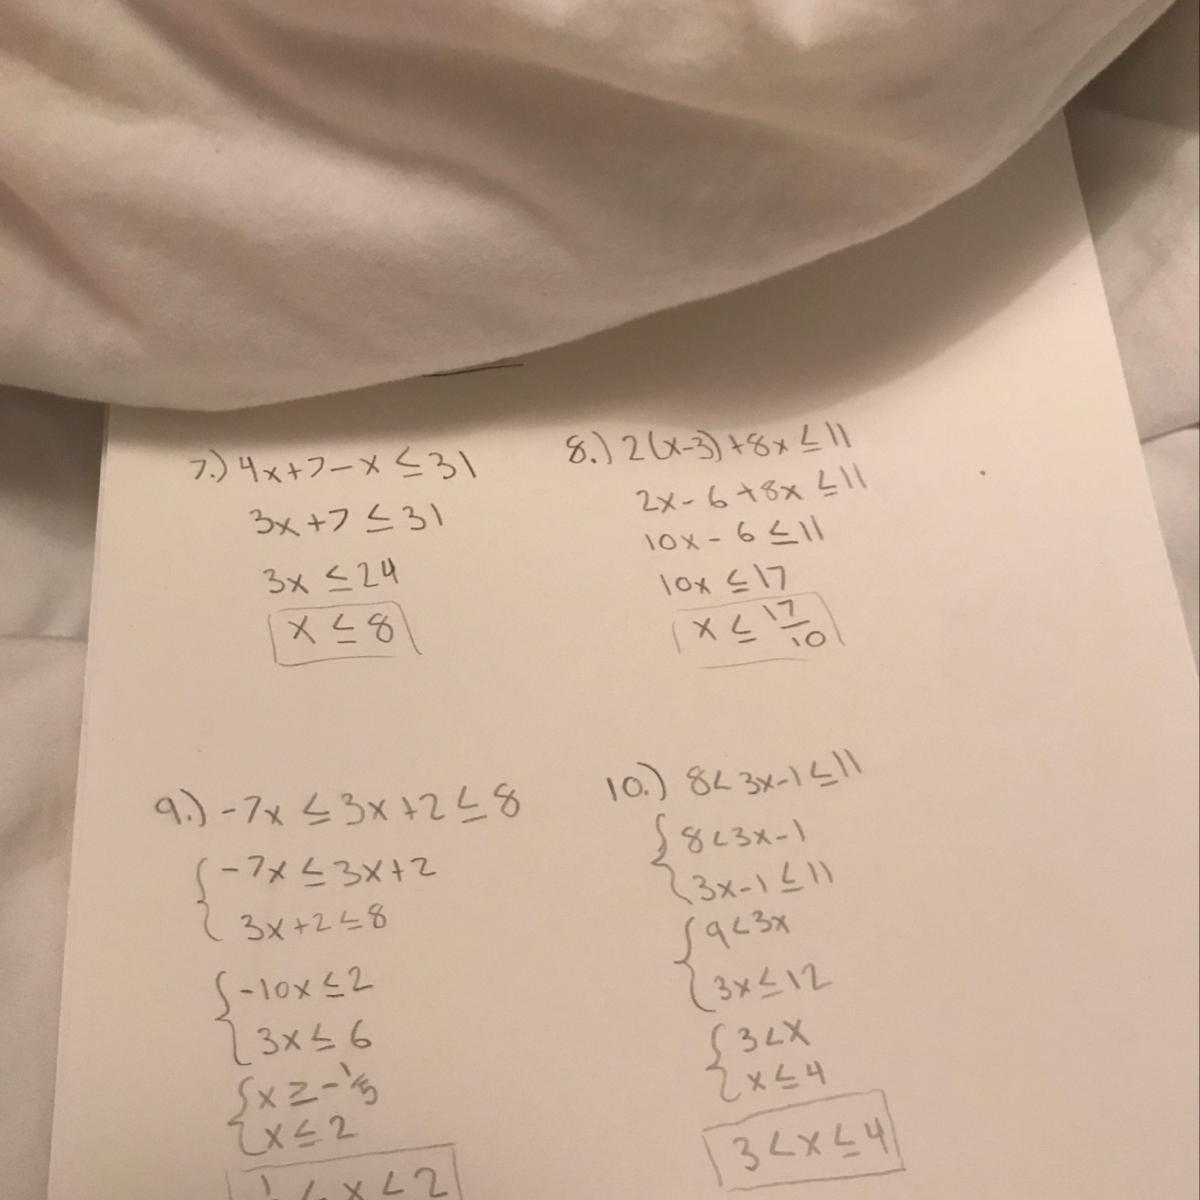 7.) 4x+7-x ≤ 31
3x+7 ≤ 31
3x ≤ 24
x ≤ 8
8.) 2(x-3)+8x ≤ 11
2x-6+8x ≤ 11
10x-6 ≤ 11
10x ≤ 17
x ≤ 17/10
9.) -7x ≤ 3x+2 ≤ 8
{ -7x ≤ 3x+2
3x+2 ≤ 8
{ -10x ≤ 2
3x ≤ 6
{ x ≥ -1/5
x ≤ 2
10.) 8 < 3x-1 ≤ 11
{ 8 < 3x-1
3x-1 ≤ 11
{ 9 < 3x
3x ≤ 12
{ 3 < x
x ≤ 4
3 < x ≤ 4